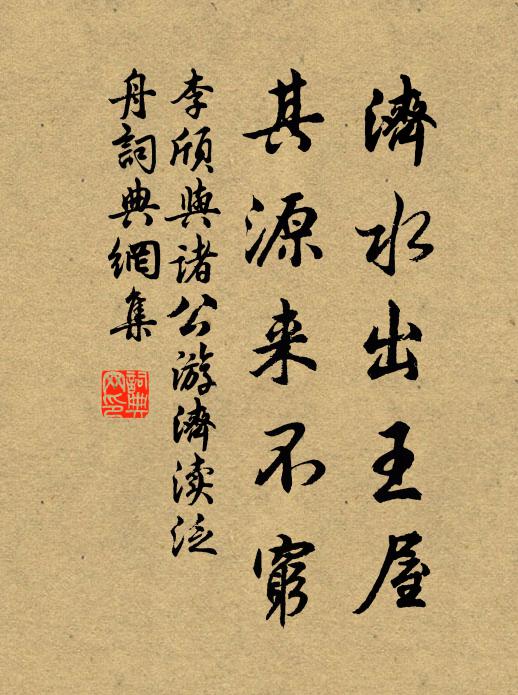 濟水出王屋
其源来不窮
李頎與諸公游濟渎泛
舟詞典網集
詞典
网印